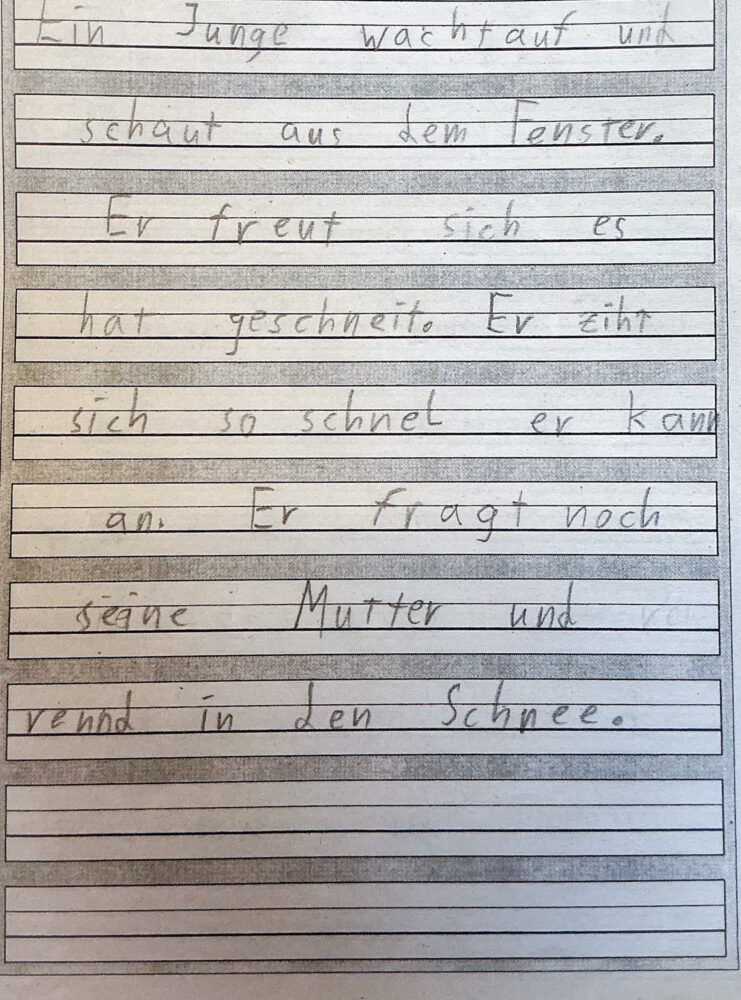 Ein Junge wacht auf und
schaut aus dem Fenster.
Er freut sich es
hat geschneit. Er ziht
sich so schnel er kann
an. Er fragt noch
seine Mutter und
rennd in den Schnee.